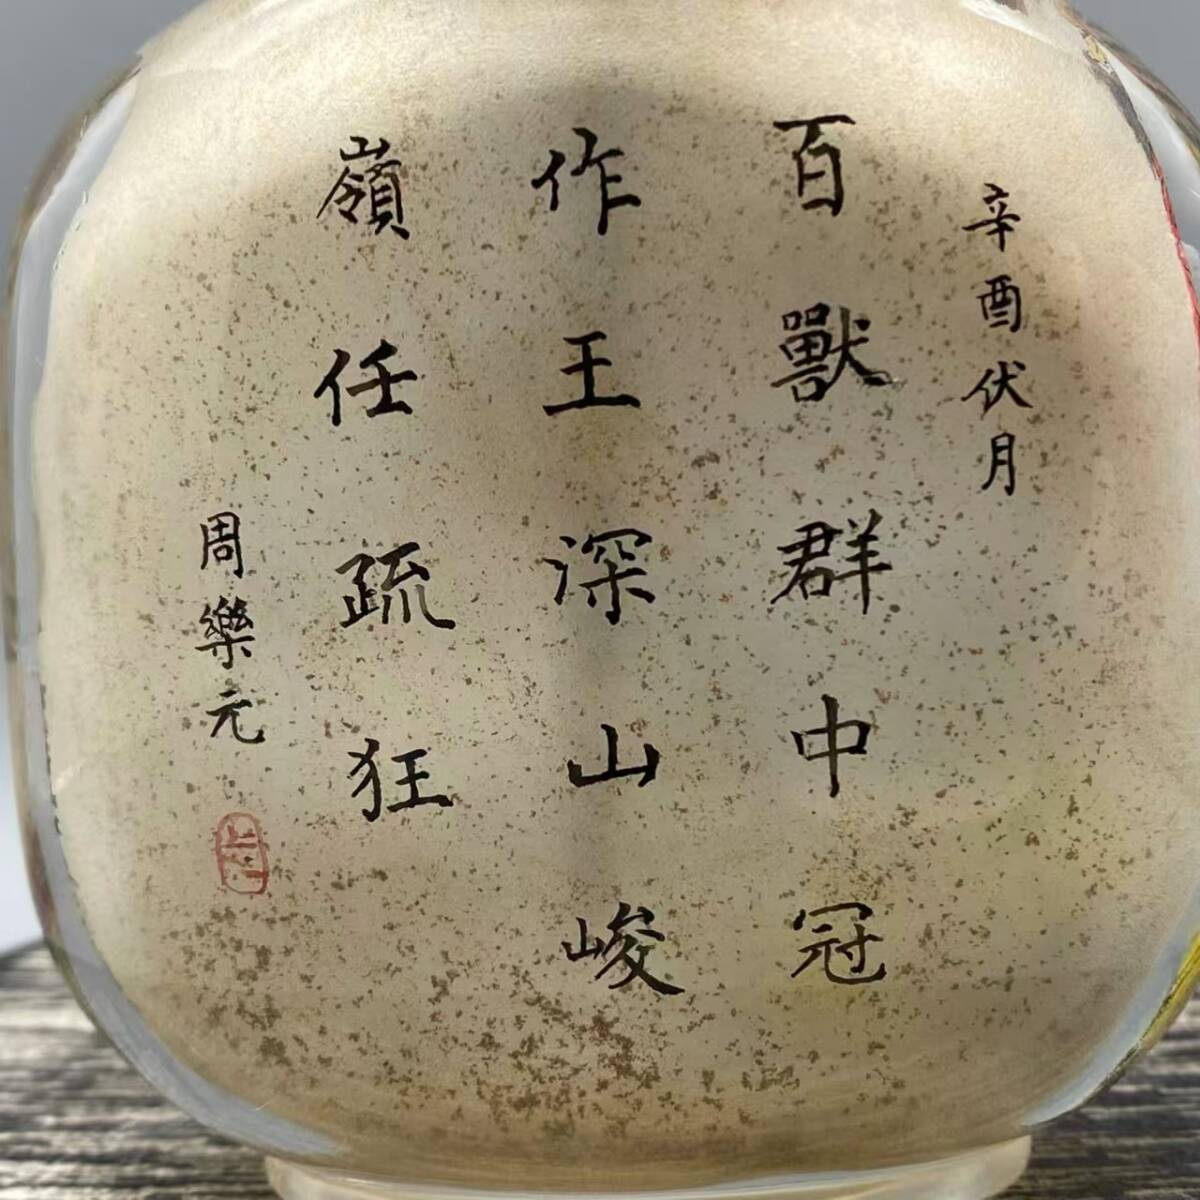 辛酉伏月
百獸群中冠
作王深山峻
嶺任疏狂
周樂元